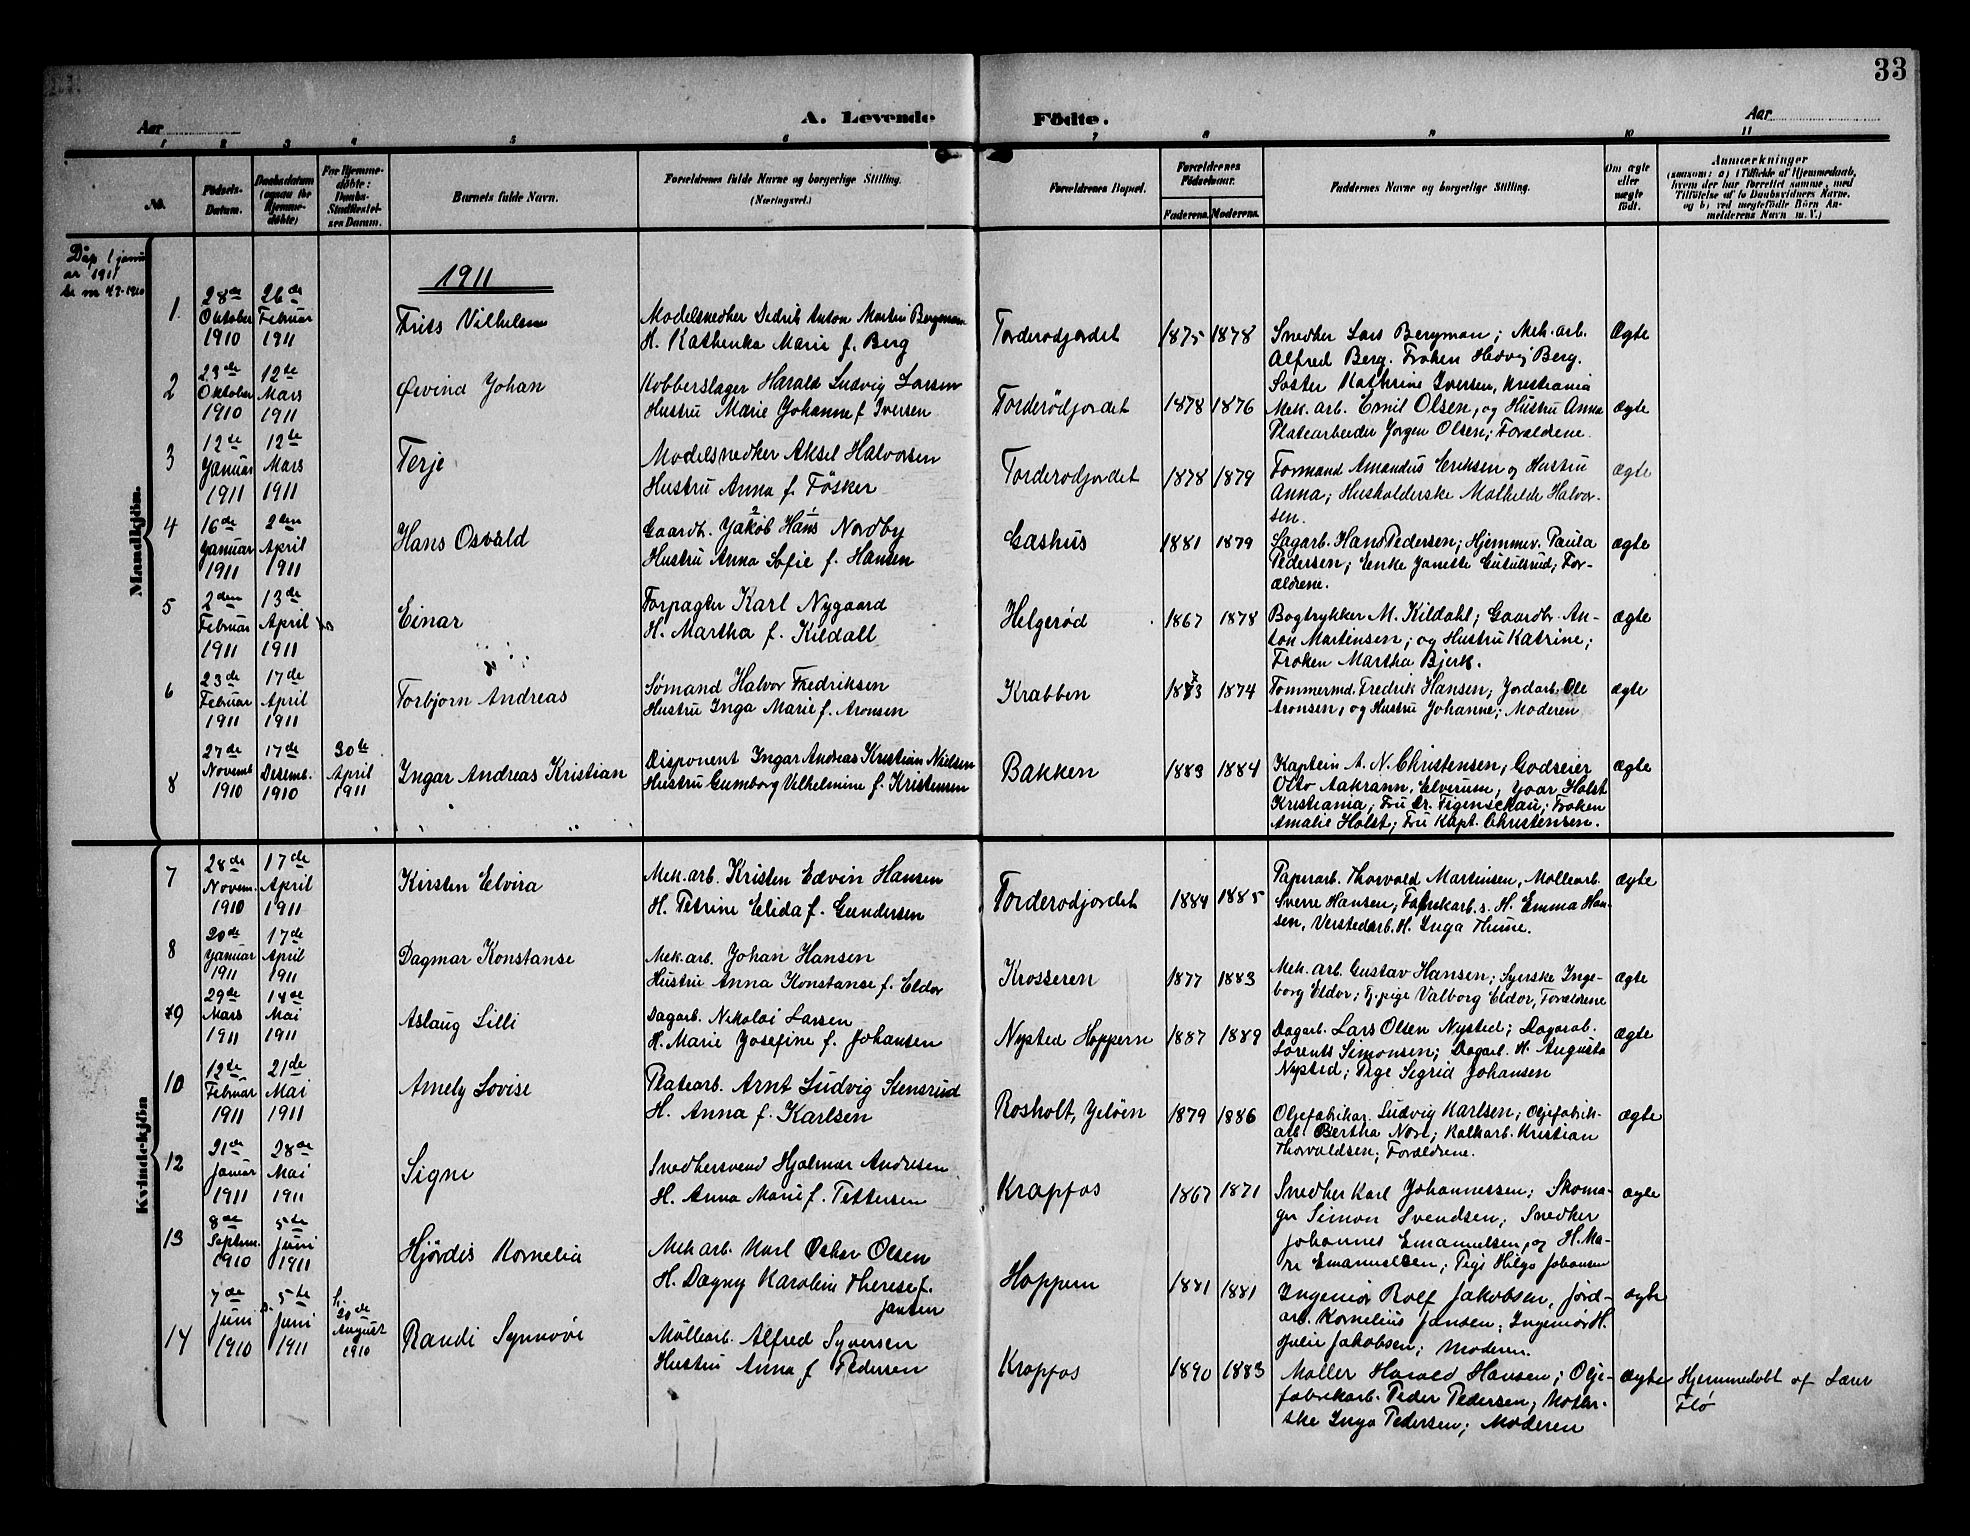 33
Aar
A. Levende Födte.
Aar
1 2 3 4 5 6 7 8 9 10 11
No.
Födsels-
Datum.
Daabsdatum
(ogsaa for
Hjemme-
döbte)
For Hjemme-
döbte:
Daabs-
Stadfæstel-
ses Datum.
Barnets fulde Navn.
Forældrenes fulde Navne og borgerlige Stilling.
(Næringsvei.)
Forældrenes Bopæl.
Forældrenes
Födselsaar.
Faderens. Moderens.
Faddernes Navne og borgerlige Stilling.
Om ægte
eller
uægte
födt.
Anmærkninger
(saasom: a) i Tilfælde af Hjemmedaab,
hvem der har forrettet samme, med
Tilföielse af to Daabsvidners Navne,
og b) ved uægtefödte Börn An-
melderens Navn m. V.)
Dåp 1 janu
ar 1911
Mandkjön.
1911
1.
28de
Oktober
1910
26de
Februar
1911
Frits Vilhelm
Modelsnedker Didrik Anton Martin Bergman
H. Kathenka Marie f. Berg
Torderodjordet
1875 1878
Snedker Lars Bergman; Mek. arb.
Alfred Berg. Frøken Hedvig Berg.
Søster Kathrine Iversen, Kristiania
Ægte
2
23de
Oktober
1910
12te
Mars
1911
Øivind Johan
Kobberslager Harald Ludvig Larsen
Hustru Marie Johanne f Iversen
Torderødjordet
1878 1876
Mek. arb. Emil Olsen, og Hustru Anna
Platearbeider Jørgen Olsen; Forældrene.
ægte
3
12te
Januar
1911
12te
Mars
1911
Terje
Modelsnedker Aksel Halvorsen
Hustru Anna f. Fösker
Torderodjordet
1878 1879
Formand Amandus Eriksen og Hustru
Anna; Husholderske Mathilde Halvor-
sen.
ægte
4
16de
Januar
1911
2den
April
1911
Hans Osvald
Gaardb. Jakob Hans Nordby
Hustru Anna Sofie f. Hansen
Gashus
1881 1879
Sagarb. Hans Pedersen; Hjemmev. Paula
Pedersen; Enke Janette Gutulsrud; For-
ældrene.
ægte
5
2den
Februar
1911
13de
April
1911
Einar
Forpagter Karl Nygaard
H. Martha f. Kildall
Helgerød
1867 1878
Bogtrykker M. Kildahl; Gaardbr. An-
ton Martinsen; og Hustru Katrine;
Frøken Martha Bjerk.
ægte
6
23de
Februar
1911
17de
April
1911
Torbjørn Andreas
Sømand Halvor Fredriksen
Hustru Inga Marie f. Aronsen
Krabben
1873 1874
Tømmermd. Fredrik Hansen; Jordarb. Ole
Aronsen, og Hustru Johanne; Moderen
ægte
8
27de
Novemb
1910
17de
Desemb.
1910
30te
April
1911
Ingar Andreas Kristian
Disponent Ingar Andreas Kristian Nielsen
Hustru Gumborg Vilhelmine f. Kristensen
Bakken
1883 1884
Kaptein A. N. Christensen; Godseier
Otto Aakrann, Elverum; Ivar Holst
Kristiania; Fru Dr. Figenschau; Frøken
Amalie Holst; Fru Kapt. Christensen.
ægte
Kvindekjön
7
28de
Novem.
1910
17de
April
1911
Kirsten Elvira
Mek. arb. Kristen Edvin Hansen
H. Petrine Elida f. Gundersen
Torderodjordet
1884 1885
Papirarb. Thorvald Martinsen, Møllearb.
Sverre Hansen; Fabrikarb.s. H. Emma Han-
sen, Verstedarb. H. Inga Thune.
ægte
8
20de
Januar
1911
17de
April
1911
Dagmar Konstanse
Mek. arb. Johan Hansen
Hustru Anna Konstanse f. Eldor
Krosseren
1877 1883
Mek. arb. Gustav Hansen; Syerske Inge-
borg Eldor; Tj. pige Valborg Eldor, Forældrene
ægte
9
29de
Mars
1911
14de
Mai
1911
Aslaug Lilli
Dagarb. Nikolai Larsen
H. Marie Josefine f. Johansen
Nysted Hoppern
1887 1889
Dagarb. Lars Olsen Nysted; Dagarb.
Lorents Simonsen; Dagarb. H. Augusta
Nysted; Pige Sigrid Johansen
ægte
10
12te
Februar
1911
21de
Mai
1911
Amely Lovise
Platearb. Arnt Ludvig Stensrud
H. Anna f. Karlsen
Rosholt, Jeløen
1879 1886
Oljefabrikar. Ludvig Karlsen; Oljefabrik-
arb. Bertha Nore; Kalkarb. Kristian
Thorvaldsen; Forældrene.
ægte
12
21de
Januar
1911
28de
Mai
1911
Signe
Snedkersvend Hjalmar Andresen
H. Anna Marie f. Pettersen
Krapfos
1867 1871
Snedker Karl Johannessen; Skoma-
ger Simon Svendsen; Snedker
Johannes Emanuelsen, og H. Ma-
rie Emanuelsen; Pige Hilga Johansen
ægte
13
8de
Septem.
1910
5te
Juni
1911
Hjördis Kornelia
Mek arb. Karl Oskar Olsen
H. Dagny Karoline Therese f.
Jansen
Hoppern
1881 1881
Ingeniør Rolf Jakobsen, Jord-
arb. Kornelius Jansen; Ingeniør H.
Julie Jakobsen; Moderen.
ægte
14
7de
Juni
1910
5te
Juni
1911
20de
August
1910
Randi Synnøve
Møllearb. Alfred Syversen
Hustru Anna f Pedersen
Krapfos
1890 1883
Møller Harald Hansen; Olje-
fabrikarb. Peder Pedersen;
Inga Pedersen; Moderen
ægte
Hjemmedøbt af Lærer
Flø